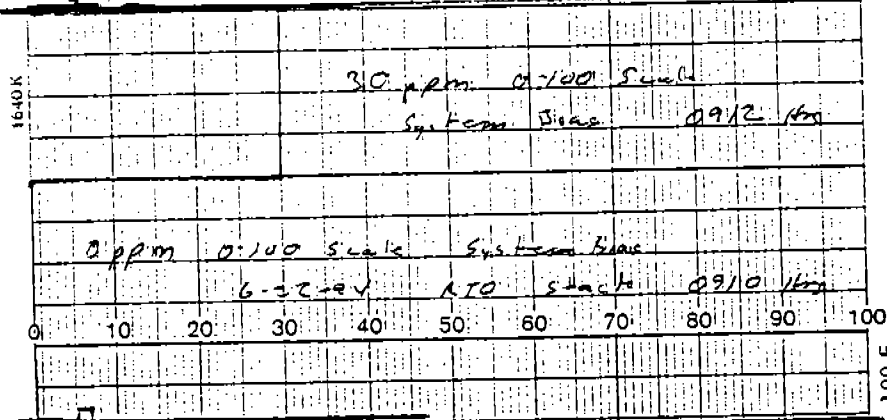 1640K
30 ppm 0-100 Scale
System Bias 0912 Hrs
0 ppm 0-100 Scale System Bias
RTO Stack 0910 Hrs
0 10 20 30 40 50 60 70 80 90 100